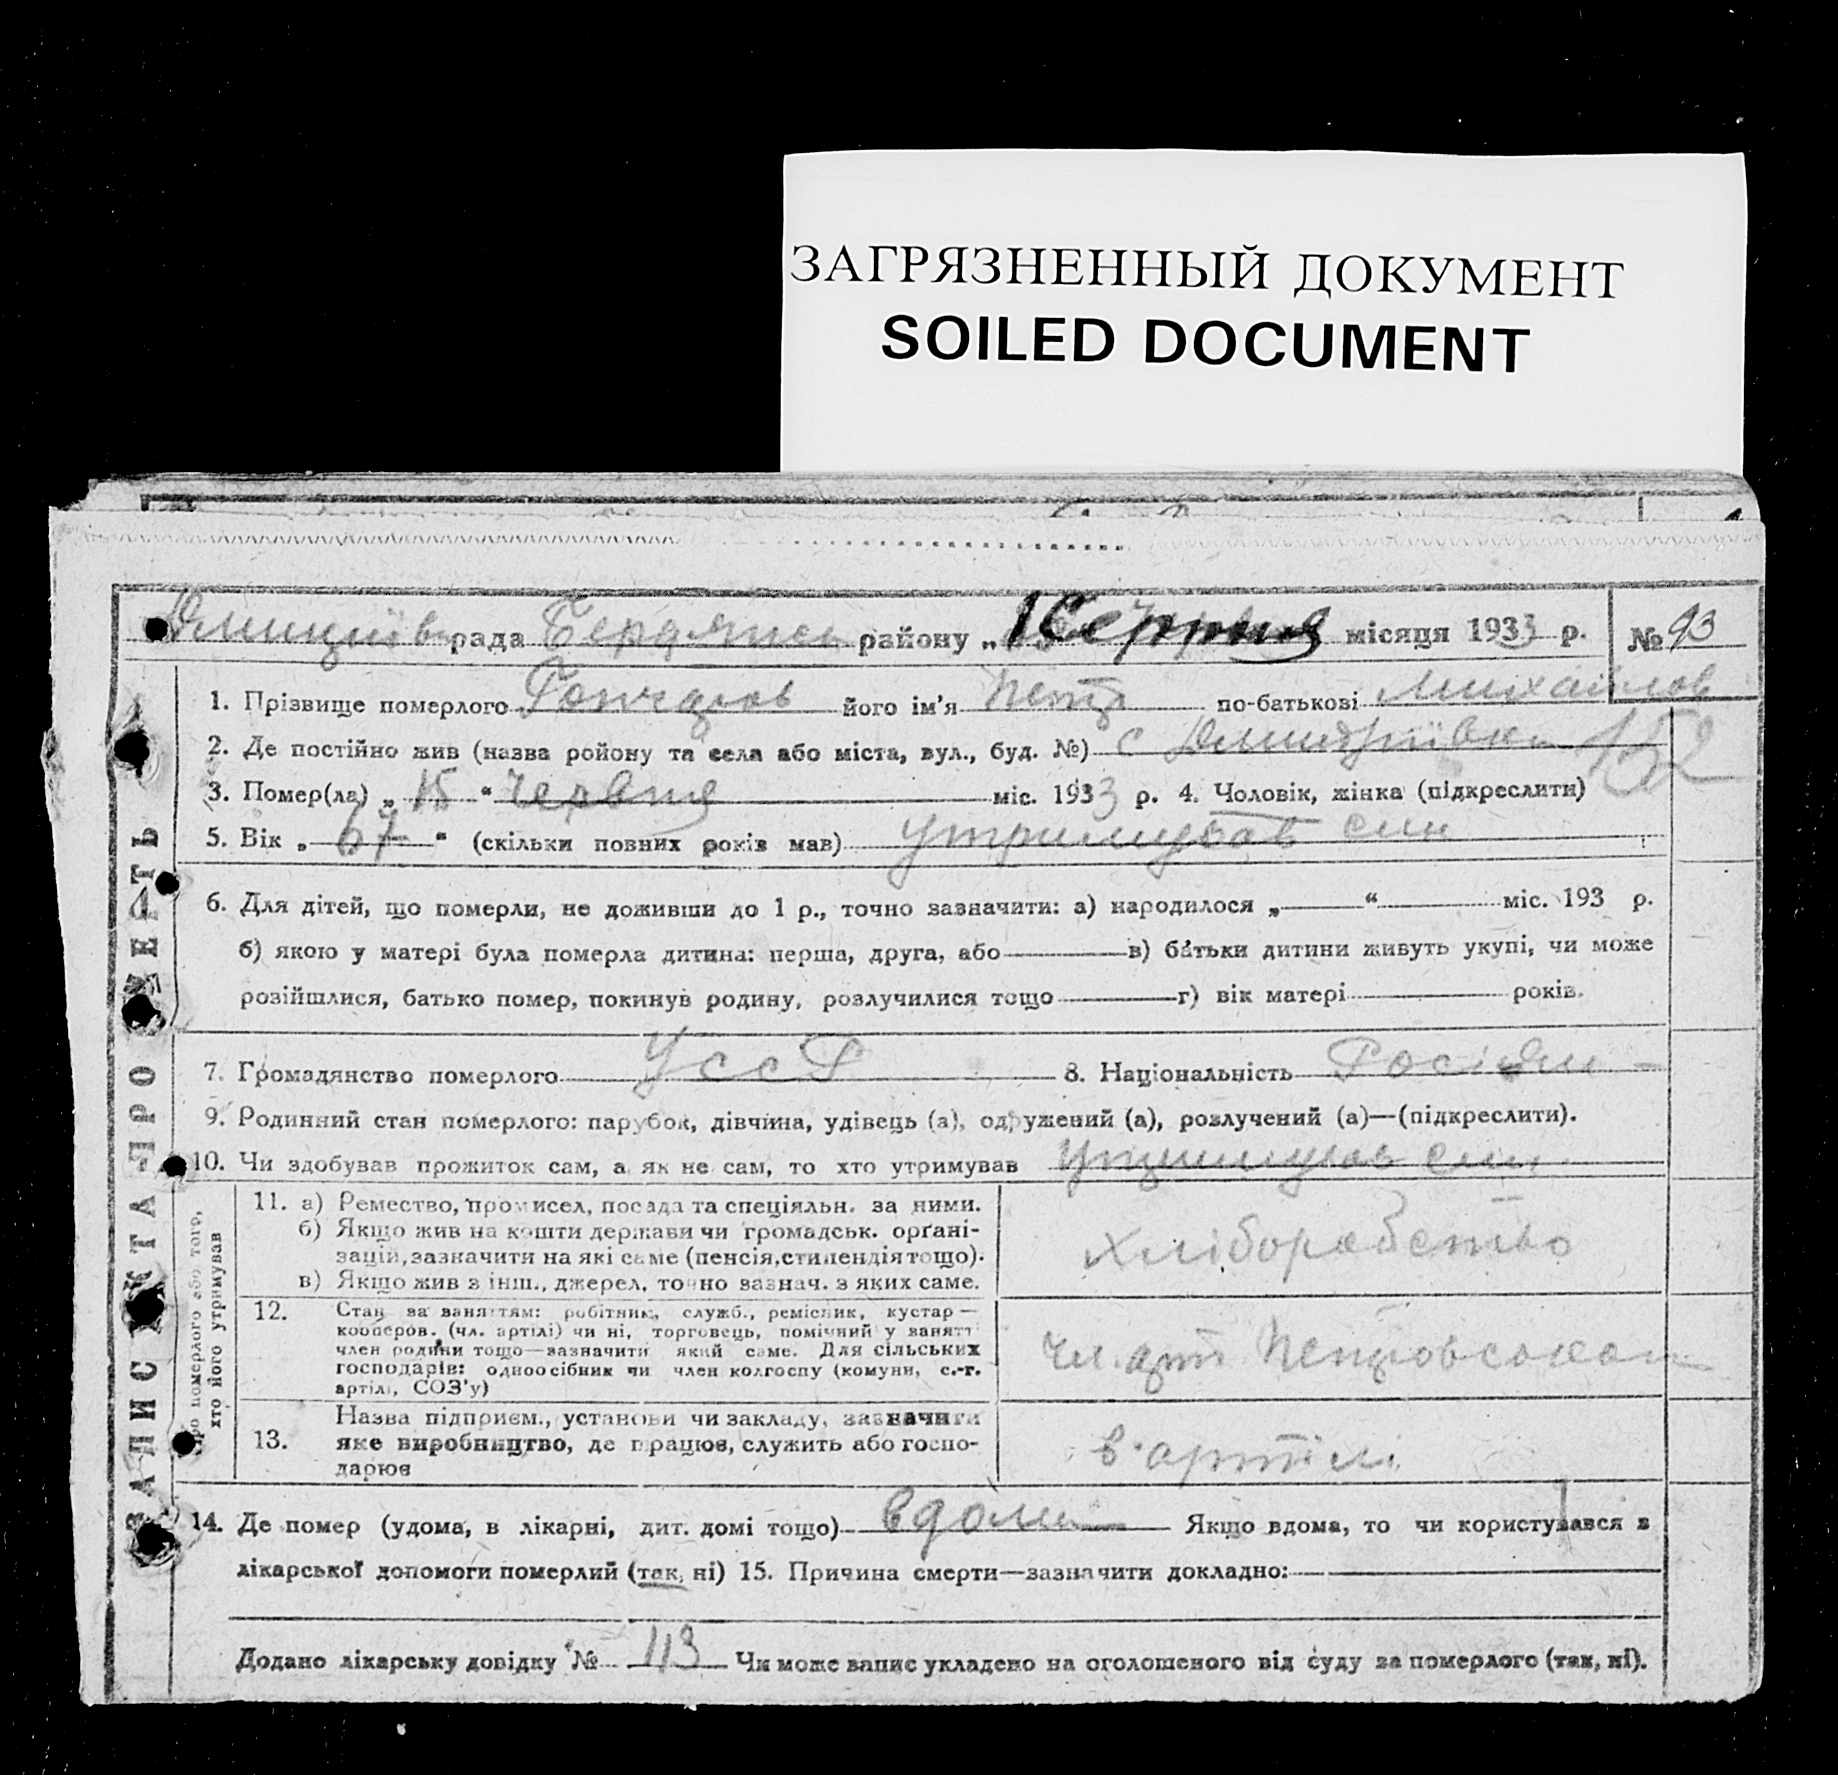 ЗАГРЯЗНЕННЫЙ ДОКУМЕНТ
SOILED DOCUMENT
рада Бердянськ району „ 15 червня місяця 1933 р. № 93
1. Прізвище померлого Гончаров його ім'я Петр по-батькові Михайлов
2. Де постійно жив (назва ройону та села або міста, вул., буд. №) с Дмитріївка 152
3. Помер(ла) „ 15 “ червня міс. 1933 р. 4. Чоловік, жінка (підкреслити)
5. Вік „ 67 “ (скільки повних років мав) утримував син
6. Для дітей, що померли, не доживши до 1 р., точно зазначити: а) народилося „ “ міс. 193 р.
б) якою у матері була померла дитина: перша, друга, або в) батьки дитини живуть укупі, чи може
розійшлися, батько помер, покинув родину, розлучилися тощо г) вік матері років.
7. Громадянство померлого УССР 8. Національність
9. Родинний стан померлого: парубок, дівчина, удівець (а), одружений (а), розлучений (а)—(підкреслити).
10. Чи здобував прожиток сам, а як не сам, то хто утримував утримував син
11. а) Ремество, промисел, посада та спеціяльн. за ними.
б) Якщо жив на кошти держави чи громадськ. орґані-
зацій, зазначити на які саме (пенсія, стипендія тощо).
в) Якщо жив з інш., джерел, точно зазнач. з яких саме.
хліборобство
12. Стан за заняттям: робітник, служб., ремісник, кустар —
кооперов. (чл. артілі) чи ні, торговець, помічний у занятт
член родини тощо—зазначити який саме. Для сільських
господарів: одноосібник чи член колгоспу (комуни, с.-г.
артілі, СОЗ'у)
чл. арт
13. Назва підприєм., установи чи закладу, зазначити
яке виробництво, де працює, служить або госпо-
дарює
в артілі
14. Де помер (удома, в лікарні, дит. домі тощо) вдома Якщо вдома, то чи користувався з
лікарської допомоги померлий (так, ні) 15. Причина смерти—зазначити докладно:
Додано лікарську довідку № 113 Чи може запис укладено на оголошеного від суду за померлого (так, ні).
ЗАПИС АКТА ПРО СМЕРТЬ
Про померлого або того,
хто його утримував